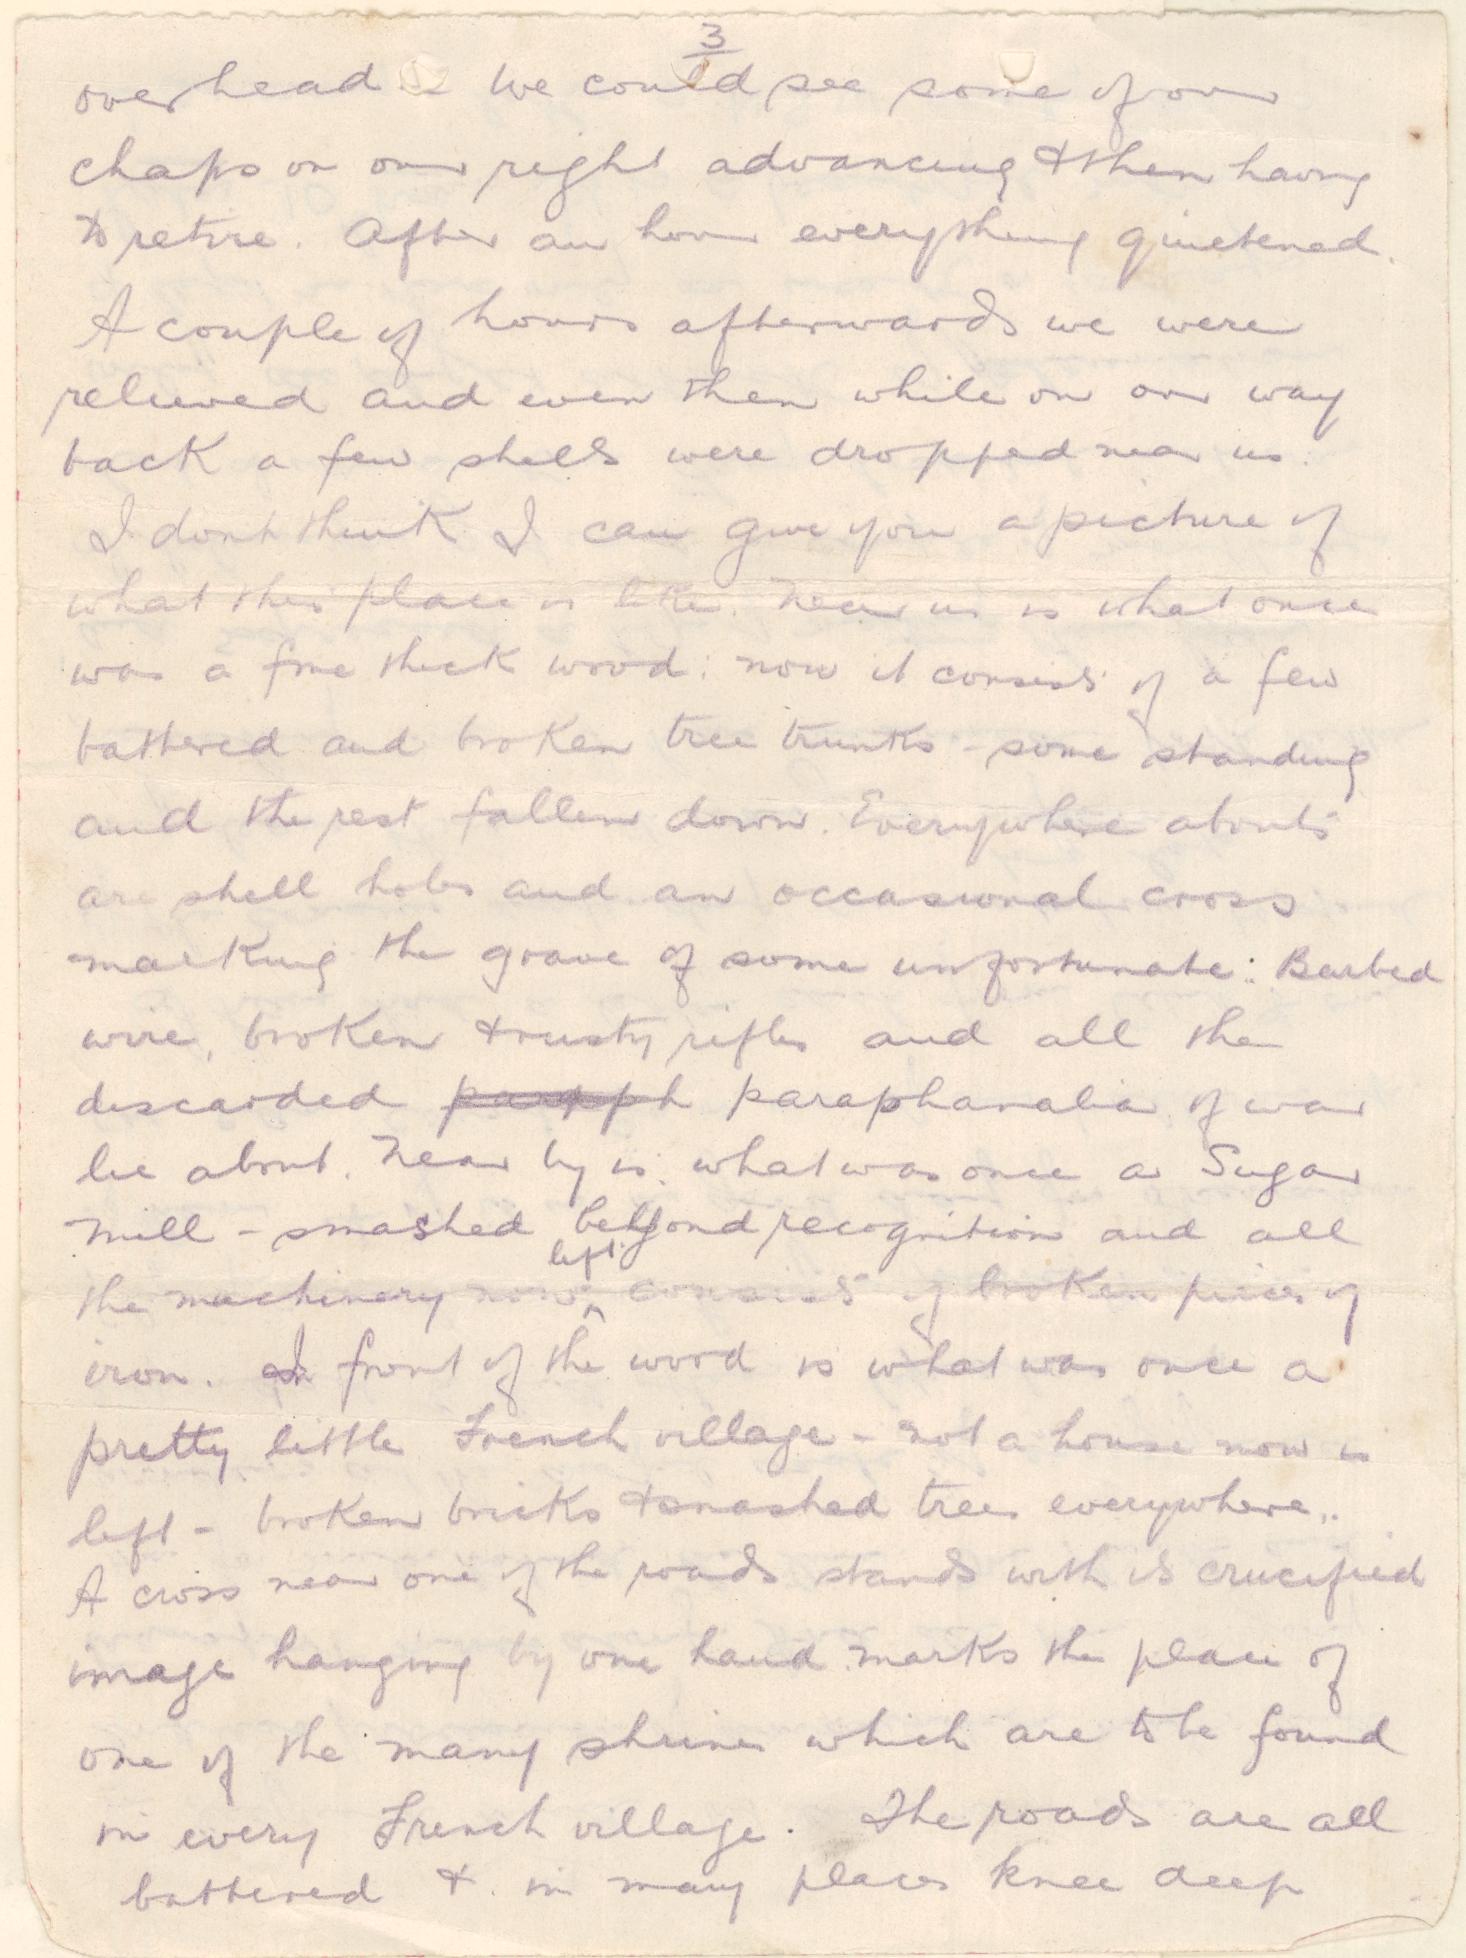 3
overhead. We could see some of our
chaps on our right advancing & then having
to retire. After an hour everything quietened.
A couple of hours afterwards we were
relieved and even then while on our way
back a few shells were dropped near us.
I dont think I can give you a picture of
what this place is like. Near us is what once
was a fine thick wood: now it consists of a few
battered and broken tree trunks - some standing
and the rest fallen down. Everywhere abouts
are shell holes and an occasional cross
marking the grave of some unfortunate. Barbed
wire, broken & rusty rifles and all the
discarded paraph paraphanalia of war
lie about. Near by is what was once a Sugar
Mill - smashed beyond recognition and all
left
the machinery now consists of broken pieces of
iron. In front of the wood is what was once a
pretty little French village - not a house now is
left - broken bricks & smashed trees everywhere..
A cross near one of the roads stands with its crucified
image hanging by one hand marks the place of
one of the many shrines which are to be found
in every French village. The roads are all
battered & in many places knee deep